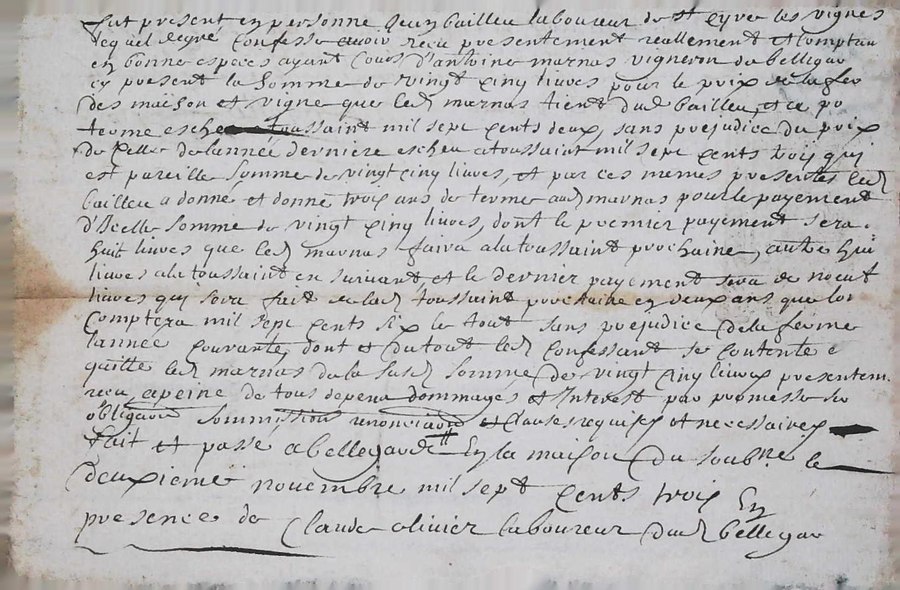 fut present en personne Jean bailleu laboureur de St Cyre les vignes
lequel de gré Confesse avoir reçu presentement reallement et Comptan
en bonne especes ayant Cours d'antoine marnas vigneron de bellegar
cy present la Somme de vingt cinq livres pour le prix de la fer
des maison et vigne que led marnas tient dud bailleu, et ce po
terme escheu toussaint mil sept cents deux, sans prejudice du prix
de celle de lannée derniere escheu a toussaint mil sept cents trois qui
est pareille somme de vingt cinq livres, et par ces memes presentes led
bailleu a donne et donne trois ans de terme aud marnas pour le payement
d'Icelle somme de vingt cinq livres, dont le premier payement sera
huit livres que led marnas faira a la toussaint prochaine, autre hui
livres a la toussaint en suivant et le dernier payement sera de noeuf
livres qui sera fait a lad toussaint prochaine en deux ans que lon
Comptera mil sept cents six le tout sans prejudice de la ferme
lannée Courante, dont et du tout led Confessant se contente e
quitte led marnas de la susd somme de vingt cinq livres presentem
reçu, a peine de tous depens dommages et Interest par promesse
obligaon Sommission renonciaon et Clauses requises et necessaires
fait et passe a bellegarde En la maison du soubne le
deuxieme novembre mil sept cents trois En
presence de Claude olivier laboureur dud bellegar